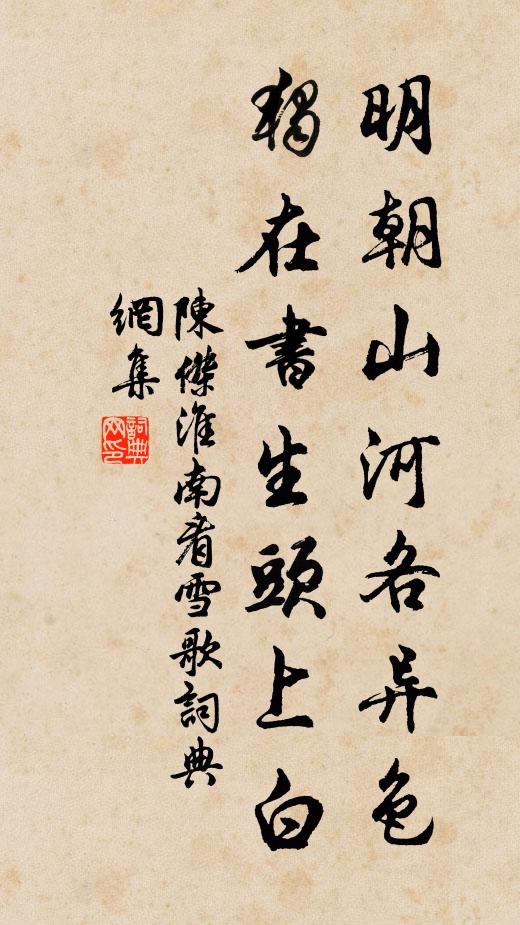 明朝山河各异色
獨在書生頭上白
陳傑淮南看雪歌詞典
網集
詞典网印